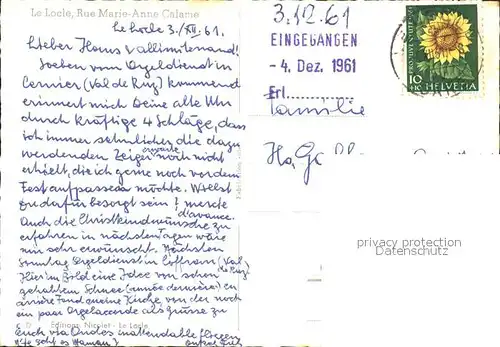 Le Locle, Rue Marie-Anne Calame
Le Locle 3./XII.61.
Lieber Hans & allimitenand!
Soeben vom Orgeldienst in
Cernier (Val de Ruz) kommend
erinnert mich Deine alte Uhr
durch kräftige 4 Schläge, dass
ich immer sehnlicher die dazu
werdenden Zeiger erwarte noch nicht
erhielt, die ich gerne noch vor dem
Fest aufpassen möchte. Willst
Du dafür besorgt sein? merci
d'avance.
Auch die Christkindwünsche zu
erfahren in nächsten Tagen wäre
mir sehr erwünscht. Nächsten
Sonntag Orgeldienst in Coffrane (Val
de Ruz)
Hier im Bild eine Idee von schon
gehabtem Schnee (année dernière) en
arrière fond meine Kirche von der noch
ein paar Orgelaccorde als Grüsse zu
Euch via Ondes
Editions Nicolet - Le Locle
3.12.61
EINGEGANGEN
- 4. Dez. 1961
Erl.
Familie
PRO JUVENTUTE 1961
10
+10
HELVETIA
privacy protection
Datenschutz